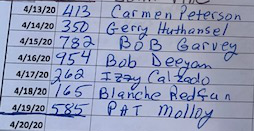 4/13/20 413 Carmen Peterson
4/14/20 350 Gery Huthansel
4/15/20 782 BOB Garvey
4/16/20 954 Bob Deegan
4/17/20 262 Izzy Calzado
4/18/20 165 Blanche Redfan
4/19/20 585 PAT Molloy
4/20/20